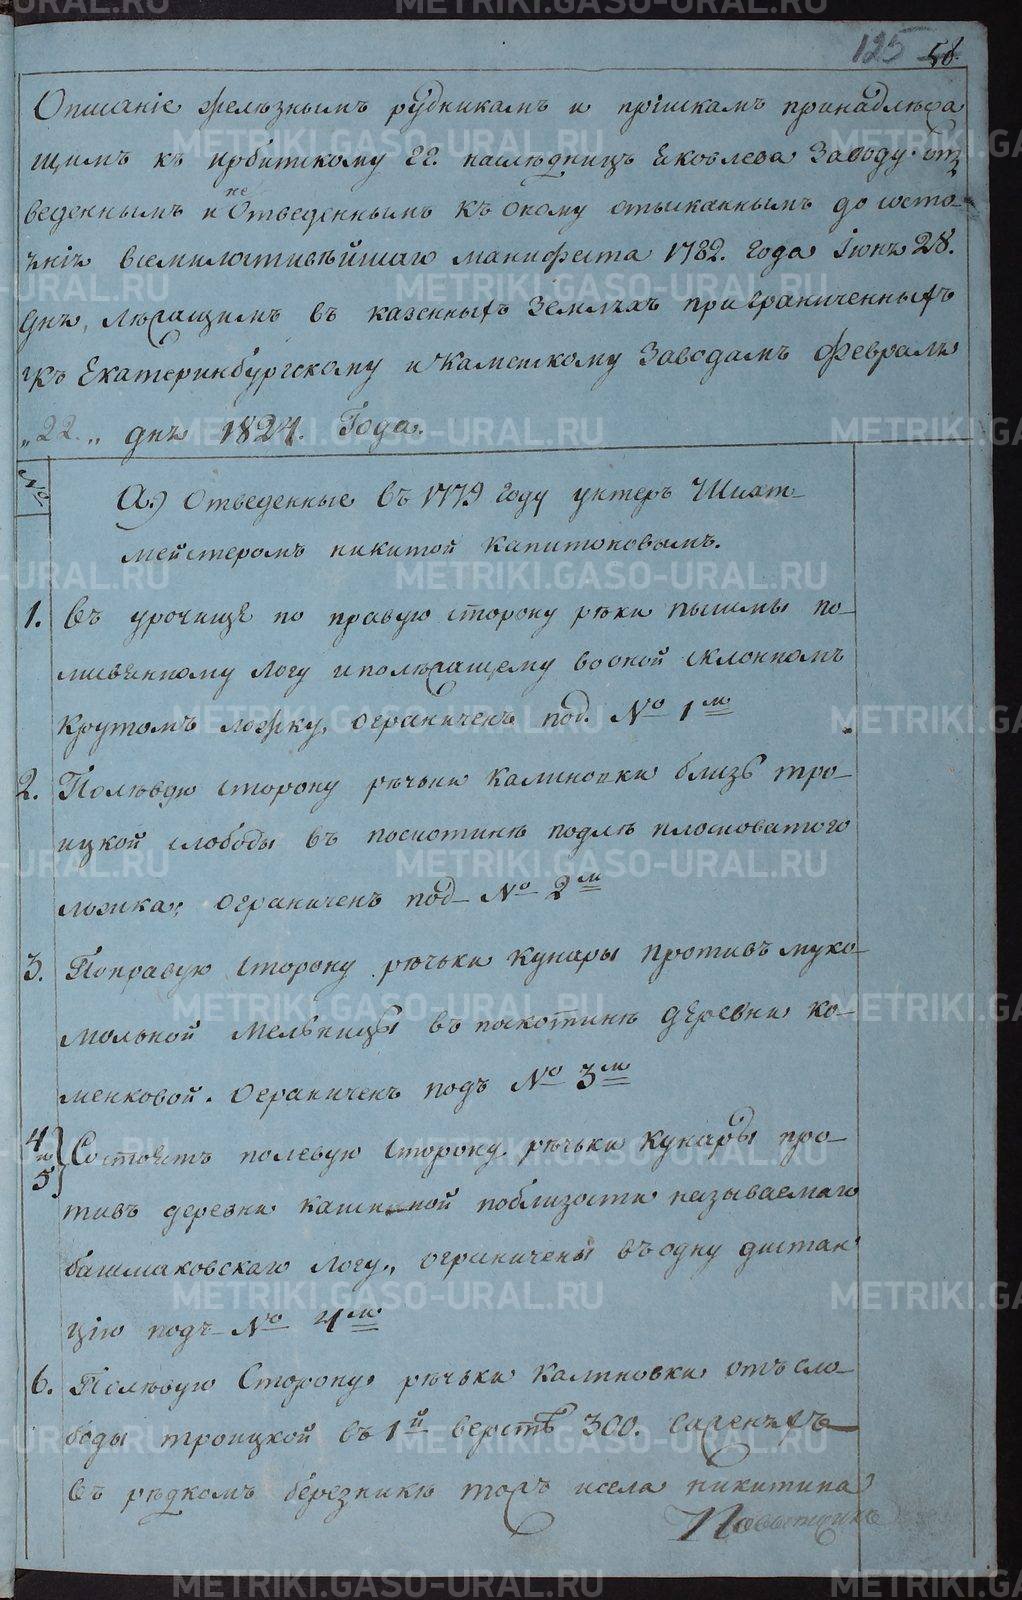 125 58.
Описаніе желѣзнымъ рудникамъ и пріискамъ принадлѣжа
щимъ къ ирбитскому гг. наслѣдницъ Яковлева Заводу отъ
веденнымъ и не Отведеннымъ къ оному отысканнымъ до состо-
янія всемилостивѣйшаго манифеста 1782. года Іюня 28.
дня, лѣжащимъ въ казенныхъ Земляхъ приграниченныхъ
къ Екатеринбургскому и Каменскому Заводамъ февраля
„22„ дня 1824. Года.
№
А.) Отведенные въ 1779 году унтеръ Шихт-
мейстеромъ никитой капитоновымъ.
1. въ урочище по правую сторону рѣки пышмы по
лисвянному логу и полѣжащему во оной склонномъ
крутомъ ложку, ограниченъ под. № 1м
2. Полѣвую сторону рѣчьки калиновки близь тро-
ицкой слободы въ поскотинѣ подлѣ плосковатого
ложка, ограниченъ под № 2м
3. Поправую сторону рѣчьки кунары противъ муко-
мольной мельницы въ поскотинѣ деревни ко-
менковой. ограниченъ подъ № 3м
4 и 5 Состоятъ полевую сторону рѣчьки кунары про-
тивъ деревни кашиной поблизости называемаго
башмаковскаго логу, ограничены въ одну дистан
цію подъ № 4м
6. Полѣвую Сторону рѣчьки калиновки отъ сло-
боды троицкой въ 1й верстѣ 300. саженяхъ
въ рѣдкомъ березникѣ тожъ исела никитина
METRIKI.GASO-URAL.RU